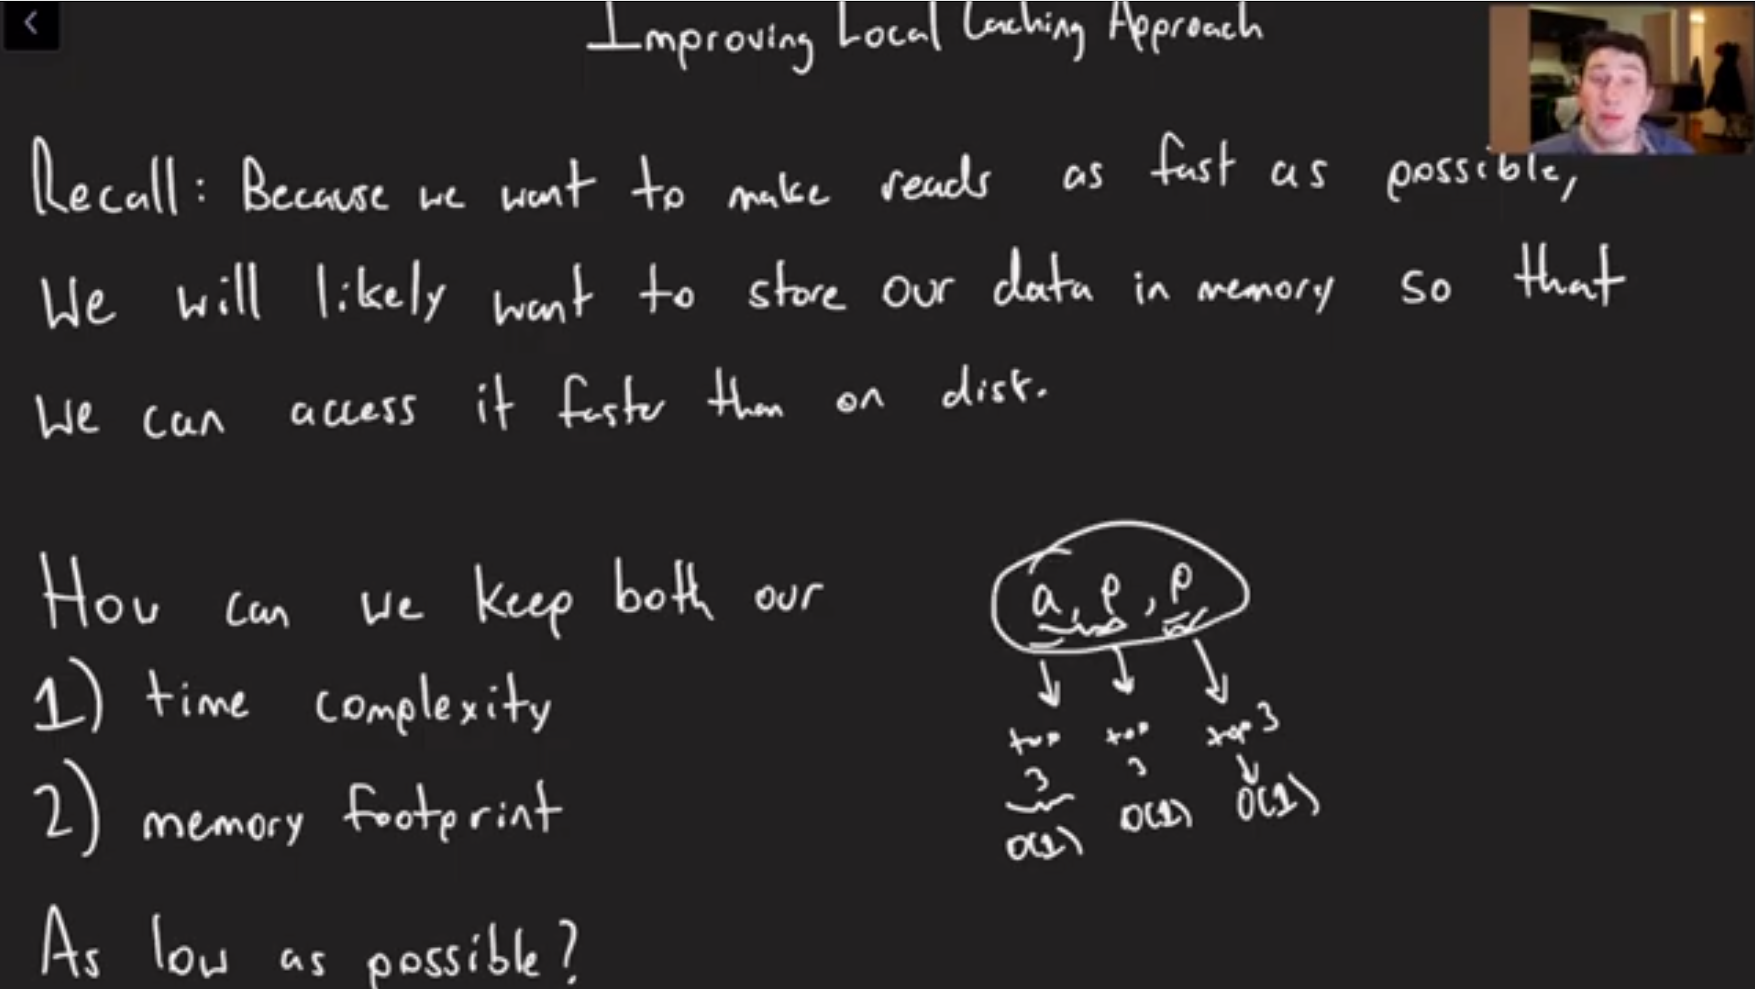 Improving Local Caching Approach
Recall: Because we want to make reads as fast as possible,
We will likely want to store our data in memory so that
We can access it faster than on disk.
How can we keep both our
1) time complexity
2) memory footprint
As low as possible?
a, p, p
top top top 3
3 3
O(1) O(1) O(1)